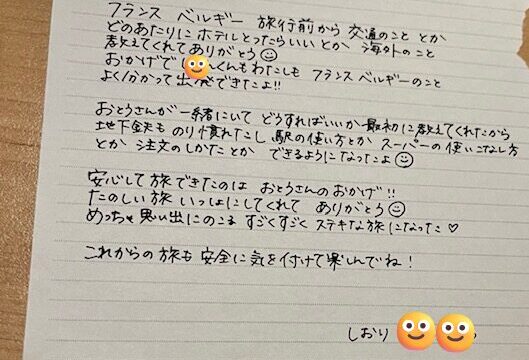 フランス ベルギー 旅行前から 交通のこと とか
どのあたりに ホテルとったらいい とか 海外のこと
教えてくれてありがとう
おかげで くんもわたしも フランス ベルギーのこと
よく分かって出発できたよ!!
おとうさんが一緒にいて どうすればいいか 最初に教えてくれたから
地下鉄も のり慣れたし 駅の使い方とか スーパーの使いこなし方
とか 注文のしかたとか できるようになったよ
安心して旅できたのは おとうさんのおかげ!!
たのしい旅 いっしょにしてくれて ありがとう
めっちゃ 思い出にのこる すごくすごく ステキな旅になったこ♡
これからの旅も 安全に気を付けて楽しんでね!
しおり